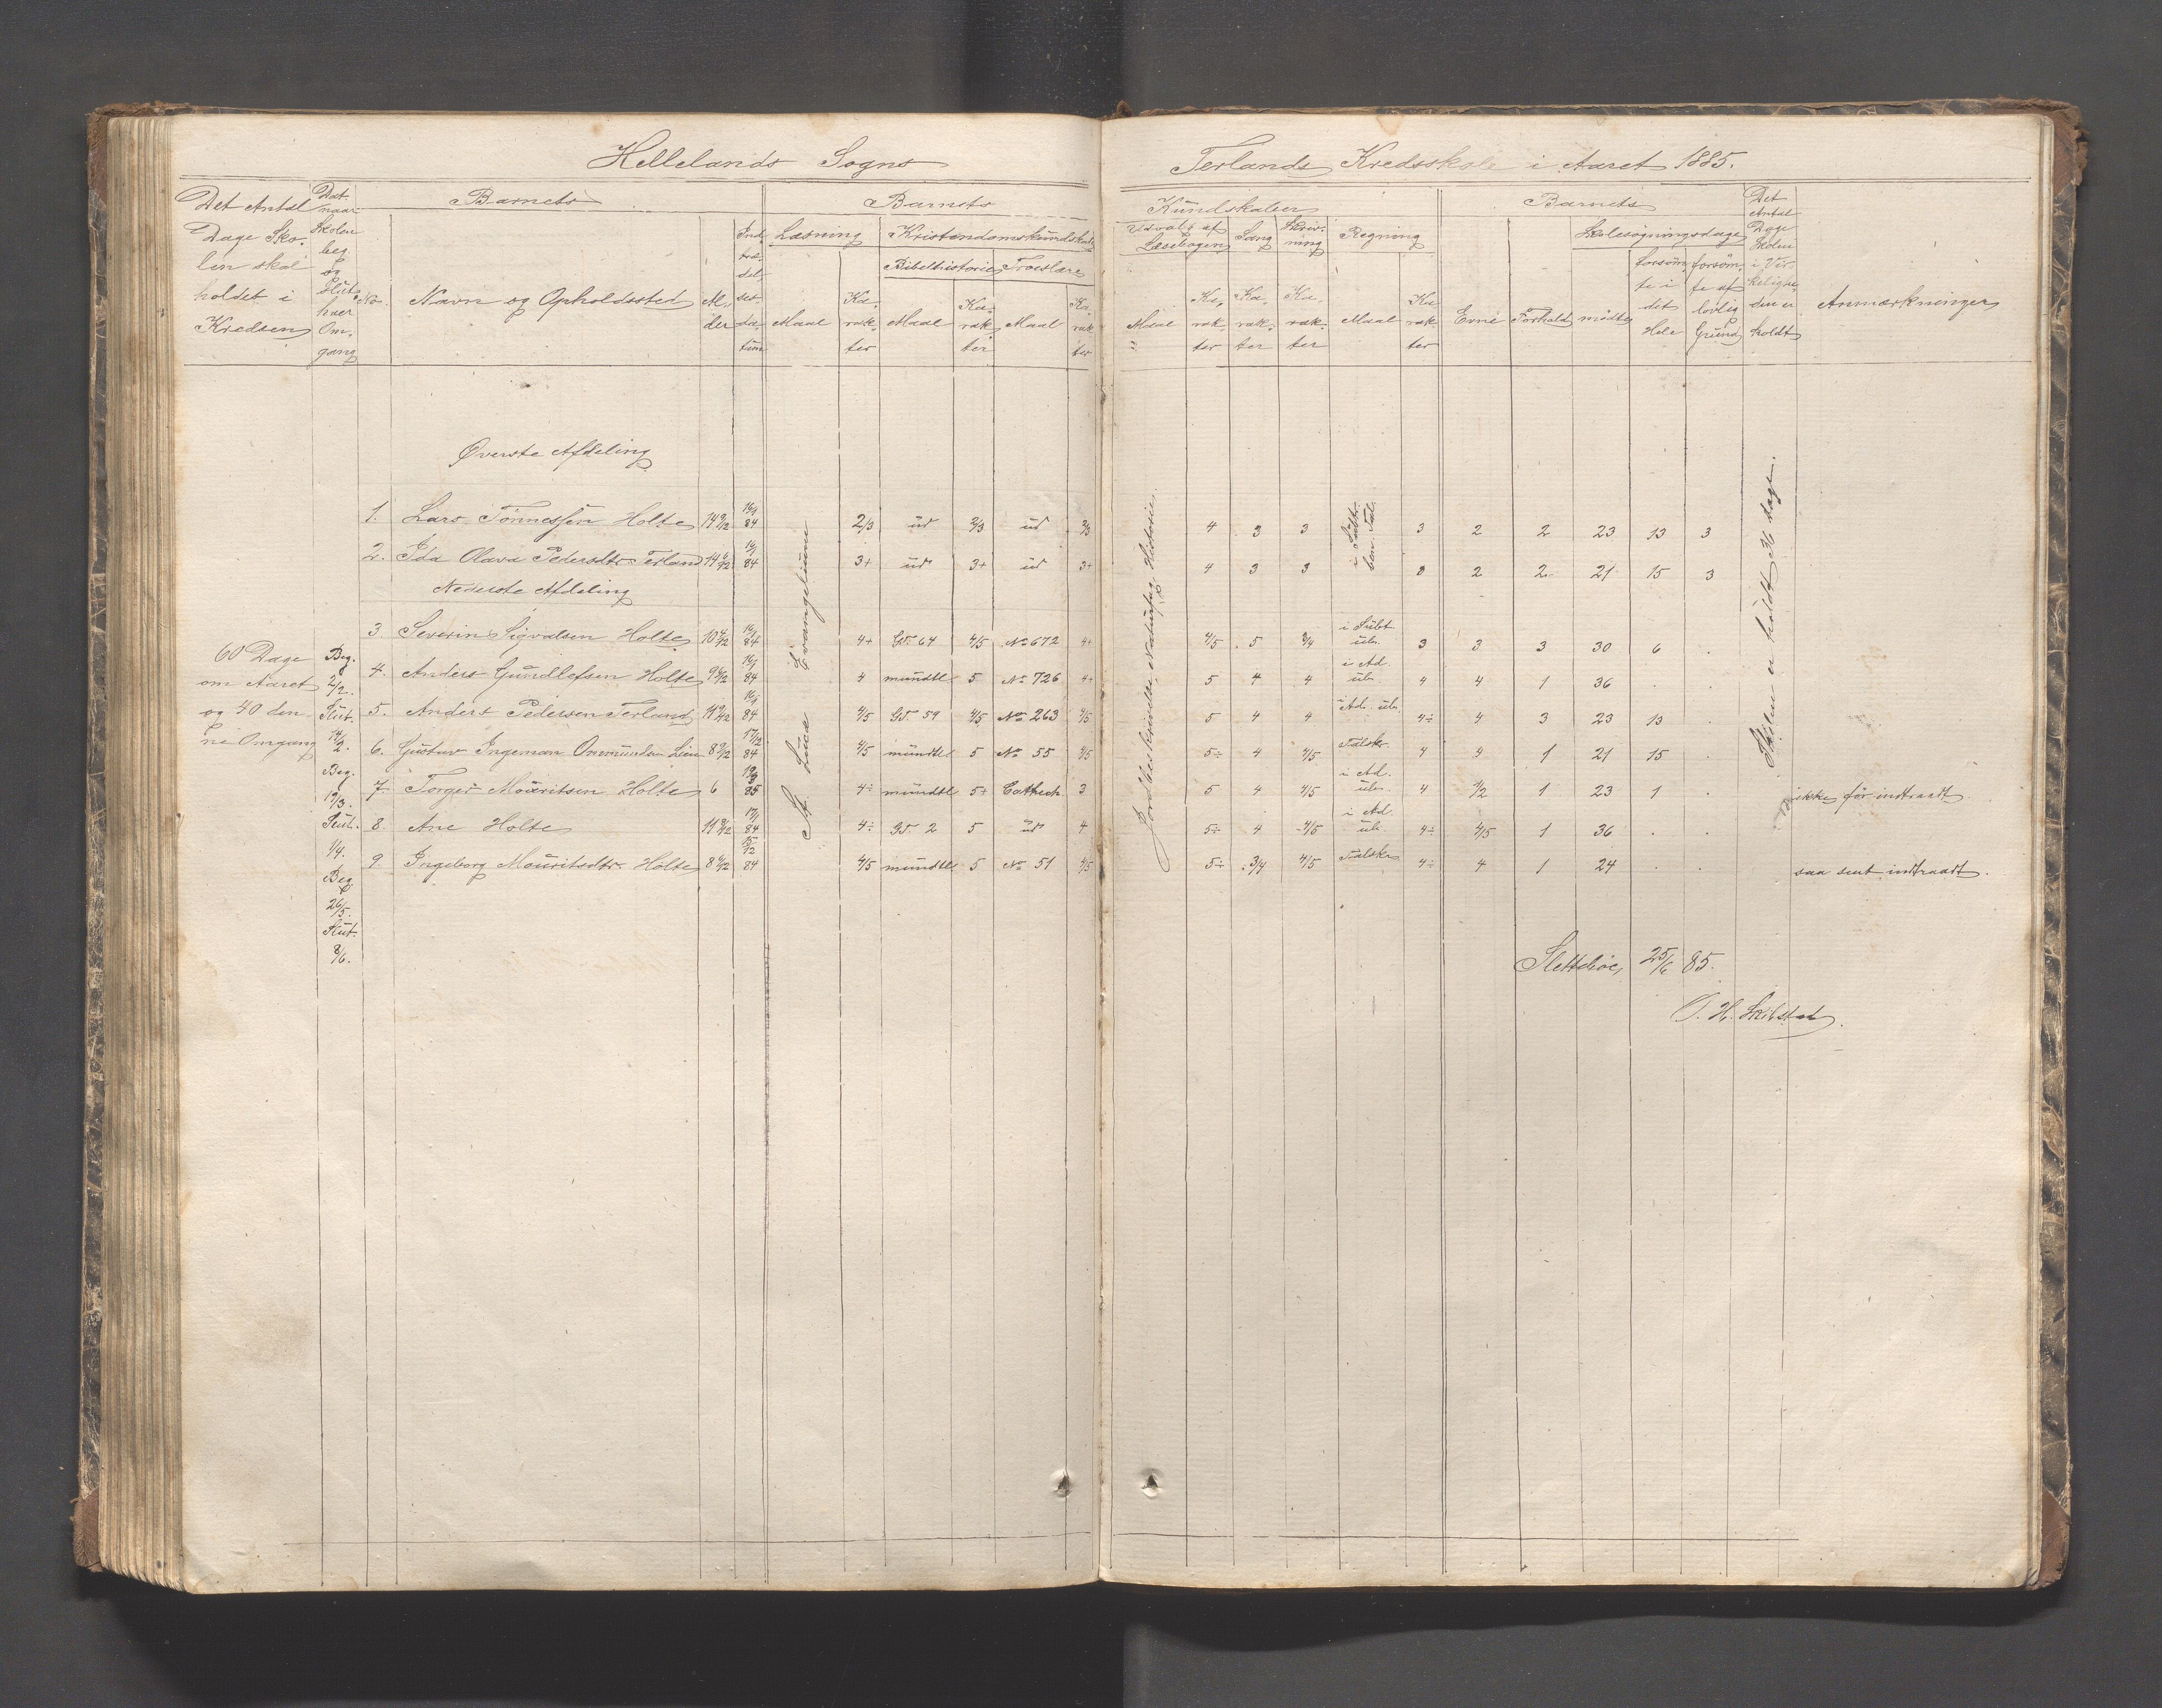 Hellelands Sogns
Terlands Kredsskole i Aaret 1885.
Det Antal Dage Skolen skal holdet i Kredsen
Dat. naar Skolen beg. og Slut. hver Omgang
No.
Barnets
Navn og Opholdssted
Alder
Indtrædelsesdatum
Barnets
Læsning
Maal
Karakter
Kristendomskundskab
Bibelhistorie
Maal
Karakter
Troeslære
Maal
Karakter
Kundskaber
Udvalg af Læsebogen
Maal
Karakter
Sang
Karakter
Skrivning
Karakter
Regning
Maal
Karakter
Barnets
Evne
Forhold
Skolesøgningsdage
mødte
forsømte i det Hele
forsømte af lovlig Grund
Det Antal Dage Skolen i Virkeligheden er holdt
Anmærkninger
60 Dage
om Aaret
og 40 denne Omgang
Beg. 2/2. Slut. 14/2. Beg. 19/3. Slut. 1/4. Beg. 26/5. Slut. 8/6.
St. Lucæ Evangelium
Jordbeskrivelse, Naturfag, Historie.
Skolen er holdt 36 dage.
Øverste Afdeling
1. Lars Tönnessen Holte 14 9/12 16/1 84 2/3 ud 2/3 ud 2/3 4 3 3 i Subtr. ben. Tal. 3 2 2 23 13 3
2. Ida Olava Pedersdtr. Terland 14 6/12 16/1 84 3+ ud 3+ ud 3+ 4 3 3 3 2 2 21 15 3
Nederste Afdeling
3. Severin Sigvalsen Holte 10 4/12 16/1 84 4+ GT. 64 4/5 No 672 4+ 4/5 5 3/4 i Subt. ub. 3 3 3 30 6 .
4. Anders Gundlefsen Holte 9 6/12 16/1 84 4 mundtl 5 No 726 4+ 5 4 4 i Ad. ub. 4 4 1 36 . .
5. Anders Pedersen Terland 11 9/12 16/1 84 4/5 GT. 59 4/5 No 263 4/5 5 4 4 i Ad. ub. 4÷ 4 3 23 13 .
6. Gustav Ingeman Ommundsen Lien 8 9/12 17/12 84 4/5 mundtl 5 No 55 4/5 5÷ 4 4/5 Talskr. 4 4 1 21 15 .
7. Torger Mouritsen Holte 6 19/3 85 4÷ mundtl 5+ Cathech 3 5 4 4/5 i Ad. ub. 4 4/2 1 23 1 . ikke før indtraadt.
8. Ane Holte 11 8/12 17/1 84 4÷ GT. 2 5 ud 4 5÷ 4 4/5 i Ad. ub. 4÷ 4/5 1 36 . .
9. Ingeborg Mouritsdtr. Holte 8 6/12 15/12 84 4/5 mundtl 5 No 51 4/5 5÷ 3/4 4/5 Talskr 4÷ 4 1 24 . . saa sent indtraadt.
Slettebøe, 25/6 85.
O. H. Skibstad.